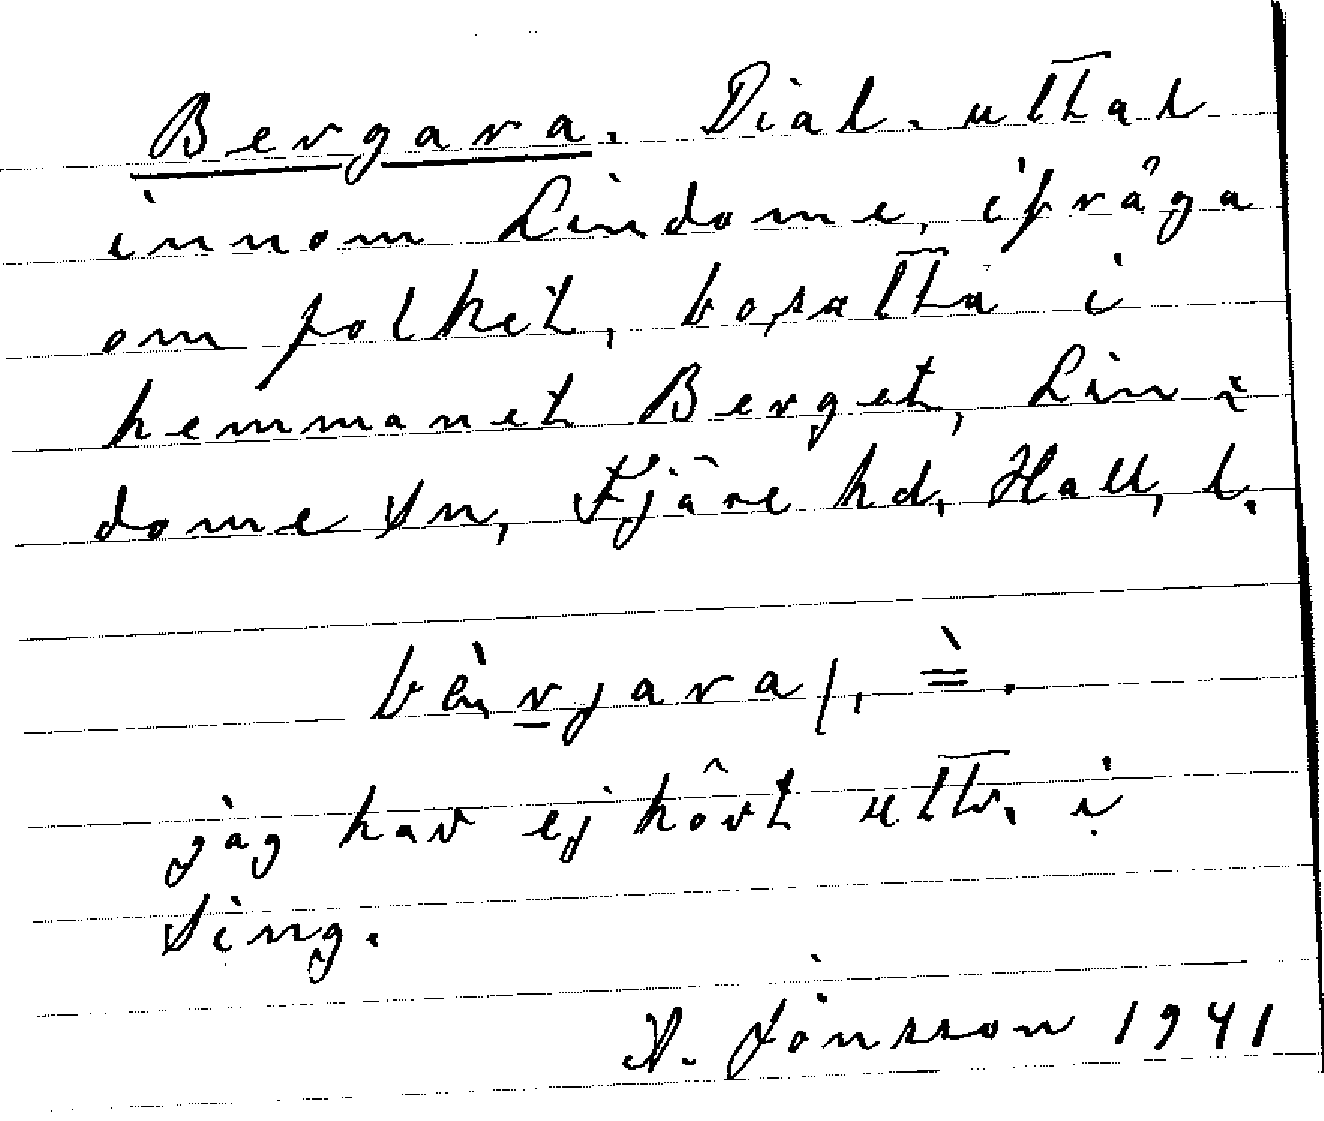 Bergara. Dial. uttal
innom Lindome, ifråga
om folket, bosatta i
hemmanet Berget, Lin-
dome sn, Fjäre hd, Hall, l.
bè̀rjara/, =̀.
jag har ej hört uttr. i
sing.
A. Jönsson 1941